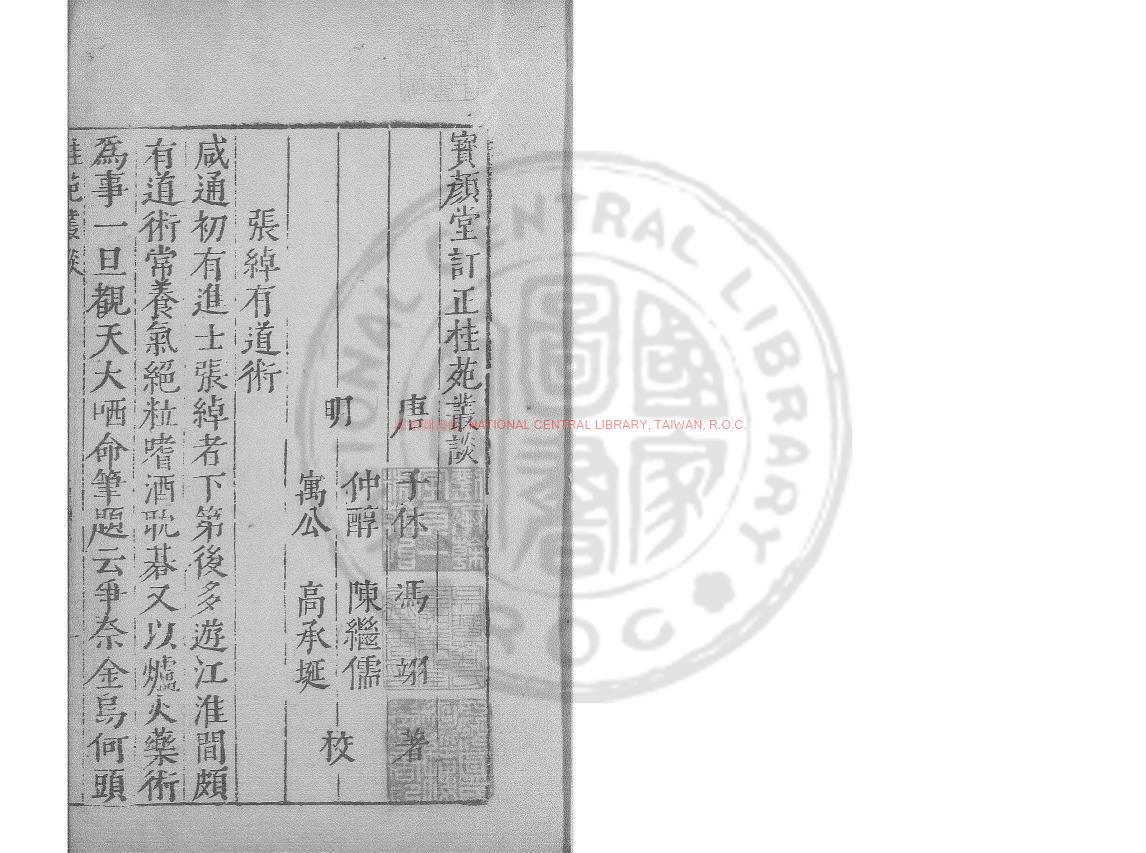 寳顏堂訂正桂苑叢談
唐 子休 馮翊 著
明 仲醇 陳繼儒
寓公 高承埏 校
張綽有道術
咸通初有進士張綽者下第後多遊江淮間頗
有道術常養氣絕粒嗜酒耽棊又以爐火藥術
爲事一旦觀天大哂命筆題云爭奈金烏何頭
桂苑叢談
NATIONAL CENTRAL LIBRARY, TAIWAN, R.O.C.
NATIONAL CENTRAL LIBRARY
R.O.C.